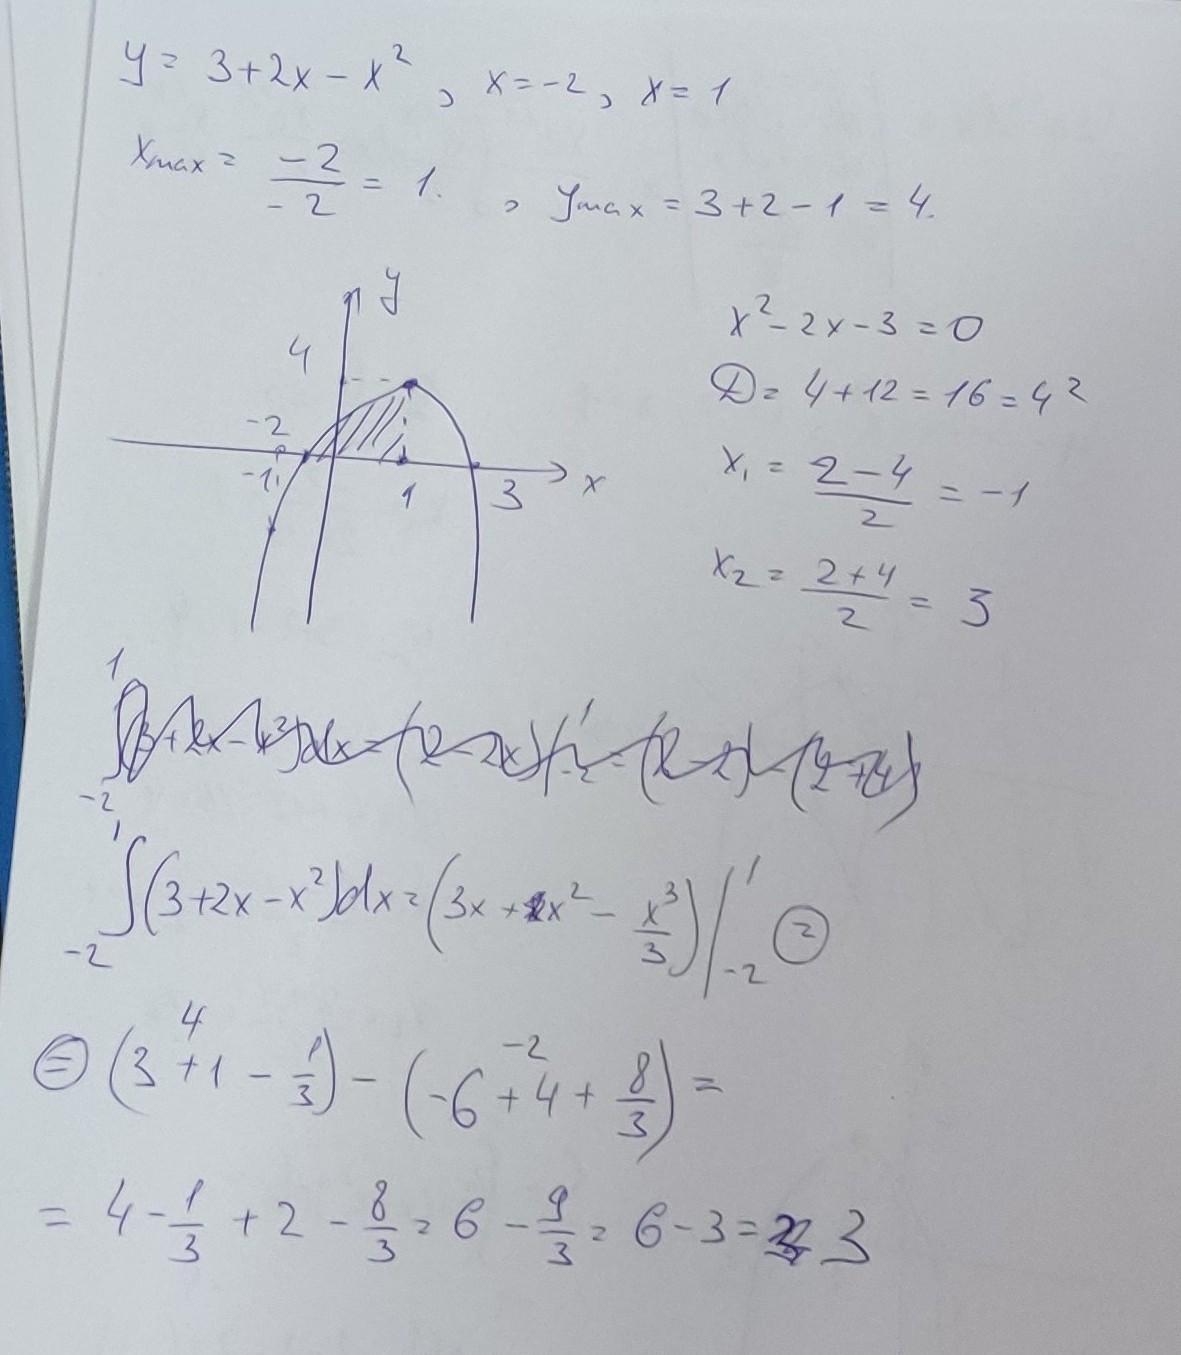 y = 3+2x-x², x=-2, x=1
xmax = -2/-2 = 1. , ymax = 3+2-1 = 4.
y
4
-2
-1
1
3
x
x²-2x-3=0
D = 4+12=16=4²
x₁ = (2-4)/2 = -1
x₂ = (2+4)/2 = 3
∫₋₂¹ (3+2x-x²)dx = (2-2x)|₋₂¹ = (2-2)-(2+4)
∫₋₂¹ (3+2x-x²)dx = (3x+x²-x³/3)|₋₂¹ =
= (3+1-1/3) - (-6+4+8/3) =
4
-2
= 4-1/3+2-8/3 = 6-9/3 = 6-3 = 3